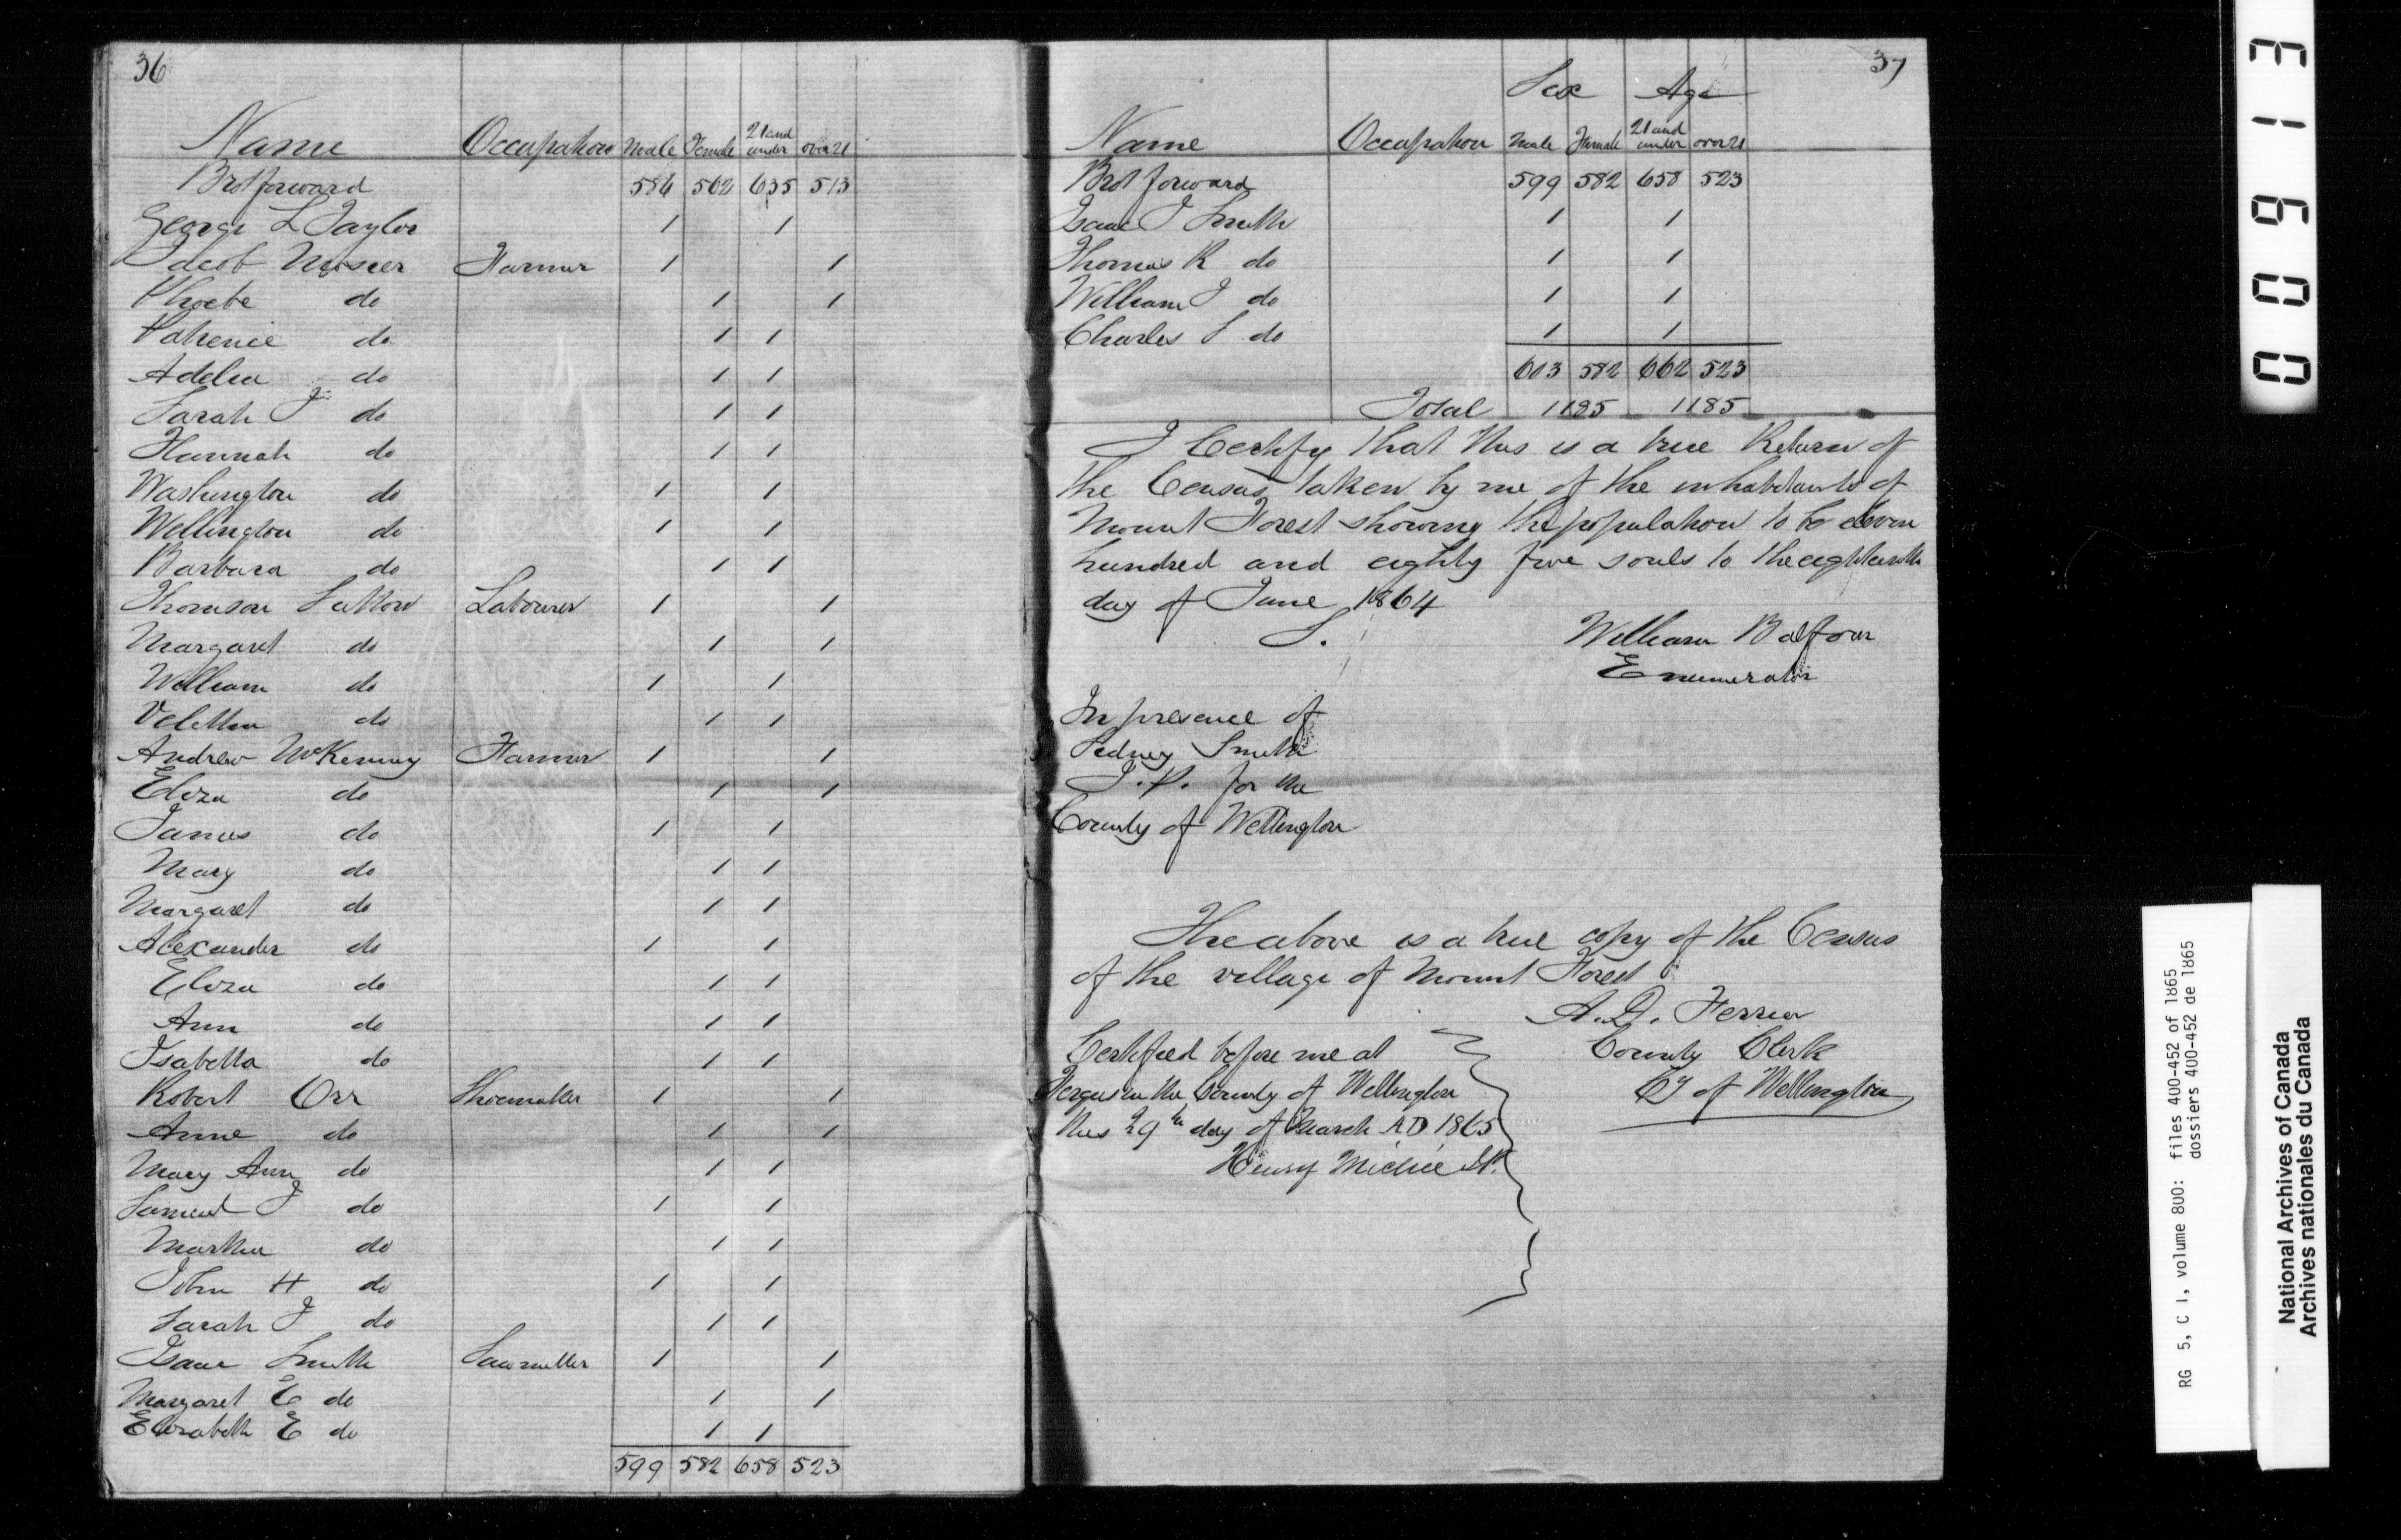 36
Name Occupation Male Female 21 and under over 21
Brot forward 586 562 635 513
George L Taylor 1 1
Jacob Farmer 1 1
Phoebe do 1 1
Patience do 1 1
Adelia do 1 1
Sarah J do 1 1
Hannah do 1 1
Washington do 1 1
Wellington do 1 1
Barbara do 1 1
Thomson Labourer 1 1
Margaret do 1 1
William do 1 1
do 1 1
Andrew McKenny Farmer 1 1
Eliza do 1 1
James do 1 1
Mary do 1 1
Margaret do 1 1
Alexander do 1 1
Eliza do 1 1
Ann do 1 1
Isabella do 1 1
Robert Orr Shoemaker 1 1
Anne do 1 1
Mary Ann do 1 1
Samuel J do 1 1
Martha do 1 1
John H do 1 1
Sarah J do 1 1
Isaac Smith Sawmiller 1 1
Margaret E do 1 1
Elizabeth E do 1 1
599 582 658 523
37
Sex Age
Name Occupation Male Female 21 and under over 21
Brot forward 599 582 658 523
Isaac J Smith 1 1
Thomas R do 1 1
William J do 1 1
Charles S do 1 1
603 582 662 523
Total 1185 1185
I Certify that this is a true Return of
the Census taken by me of the inhabitants of
Mount Forest showing the population to be eleven
hundred and eighty five souls to the eighteenth
day of June 1864
S.
William Balfour
Enumerator
In presence of
Sedney Smith
J.P. for the
County of Wellington
The above is a true copy of the Census
of the village of Mount Forest
A. D. Ferrier
County Clerk
Cy of Wellington
Certified before me at
Fergus in the County of Wellington
this 29th day of March AD 1865
Henry Michie J.P.
00913
RG 5, C 1, volume 800: files 400-452 of 1865
dossiers 400-452 de 1865
National Archives of Canada
Archives nationales du Canada